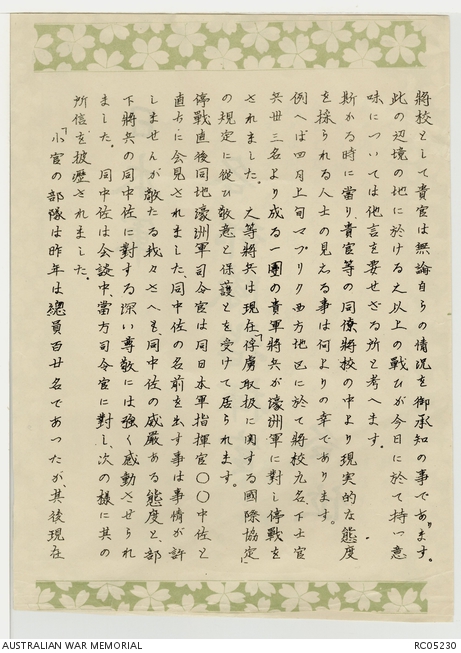 將校として貴官は無論自らの情況を御承知の事であります。
此の辺境の地に於ける之以上の戰ひが今日に於て持つ意
味については他言を要せざる所と考へます。
斯かる時に當り、貴官等の同僚將校の中より現実的な態度
を採られる人士の見える事は何よりの幸であります。
例へば四月上旬マプリク西方地区に於て將校九名下士官
兵卅三名より成る一團の貴軍將兵が濠洲軍に對し停戰を
されました。之等將兵は現在「俘虜取扱に関する國際協定」
の規定に從ひ敬意と保護とを受けて居られます。
停戰直後同地濠洲軍司令官は同日本軍指揮官〇〇中佐と
直ちに会見されました、同中佐の名前を出す事は事情が許
しませんが敵たる我々さへも同中佐の威厳ある態度と、部
下將兵の同中佐に對する深い尊敬には強く感動させられ
ました。同中佐は会談中、當方司令官に對し、次の樣に其の
所信を披瀝されました。
「小官の部隊は昨年は總員百廿名であつたが、其後現在
AUSTRALIAN WAR MEMORIAL
RC05230